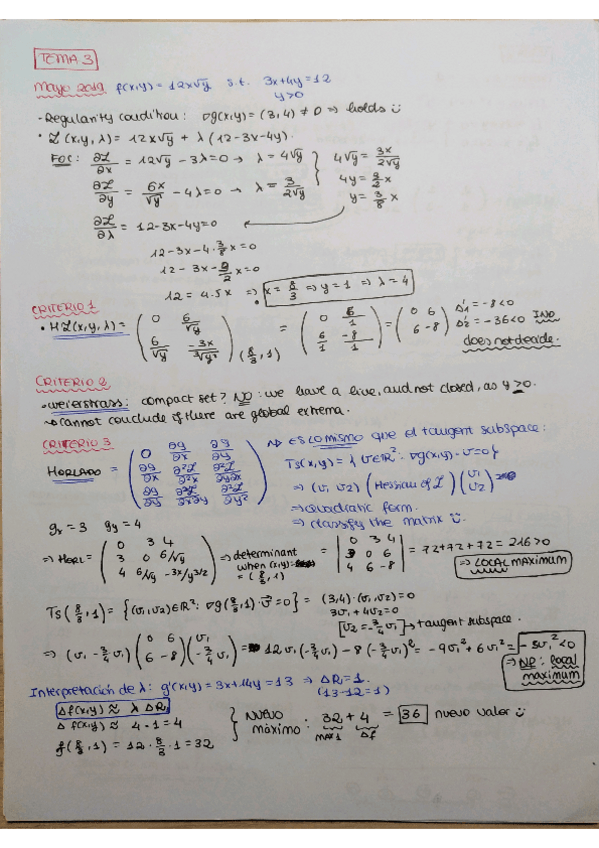 TEMA 3
Mayo 2019. f(x,y) = 12x√y s.t. 3x+4y=12
y>0
- Regularity condition: ∇g(x,y) = (3,4) ≠ 0 ⇒ holds ☺
• ℒ(x,y,λ) = 12x√y + λ(12-3x-4y).
FOC: ∂ℒ/∂x = 12√y - 3λ = 0 → λ = 4√y } 4√y = 3x/2√y
∂ℒ/∂y = 6x/√y - 4λ = 0 → λ = 3/2√y 4y = 3/2 x
y = 3/8 x
∂ℒ/∂λ = 12-3x-4y=0
12-3x-4·3/8x=0
12-3x-9/2x=0
12 = 4.5x ⇒ x = 8/3 ⇒ y = 1 ⇒ λ = 4
CRITERIO 1
• Hℒ(x,y,λ) = (0 6/√y
6/√y -3x/√y³) (8/3,1) = (0 6/1
6/1 -8/1) = (0 6
6 -8) Δ'1 = -8<0
Δ'2 = -36<0 IND
does not decide.
CRITERIO 2
- Weierstrass: compact set? NO: we have a line, and not closed, as y>0.
↳ cannot conclude if there are global extrema.
CRITERIO 3
HORLADO = (0 ∂g/∂x ∂g/∂y
∂g/∂x ∂²ℒ/∂x² ∂²ℒ/∂x∂y
∂g/∂y ∂²ℒ/∂x∂y ∂²ℒ/∂y²)
⇒ ES LO MISMO que el tangent subspace:
Ts(x,y) = { v∈ℝ²: ∇g(x,y)·v=0}
⇒ (v1 v2) (Hessian of ℒ) (v1
v2)
⇒ quadratic form.
⇒ classify the matrix ☺.
gx = 3 gy = 4
⇒ HORL = (0 3 4
3 0 6/√y
4 6/√y -3x/y^3/2) ⇒ determinant
when (x,y) =
= (8/3,1)
= |0 3 4
3 0 6
4 6 -8| = 72+72+72 = 216>0
⇒ LOCAL MAXIMUM
Ts(8/3,1) = {(v1,v2)∈ℝ²: ∇g(8/3,1)·v⃗=0} = (3,4)·(v1,v2)=0
3v1+4v2=0
[v2=-3/4v1] → tangent subspace.
⇒ (v1 -3/4v1) (0 6
6 -8) (v1
-3/4v1) = 12v1(-3/4v1) - 8(-3/4v1)² = -9v1²+6v1² = -3v1²<0
⇒ ND: local
maximum
Interpretación de λ: g'(x,y) = 3x+4y = 13 ⇒ ΔRi=1.
(13-12=1)
Δf(x,y) ≈ λ ΔRi
Δf(x,y) ≈ 4·1=4
f(8/3,1) = 12·8/3·1=32
} NUEVO
máximo: 32 + 4 = 36 nuevo valor ☺
MAX1 Δf